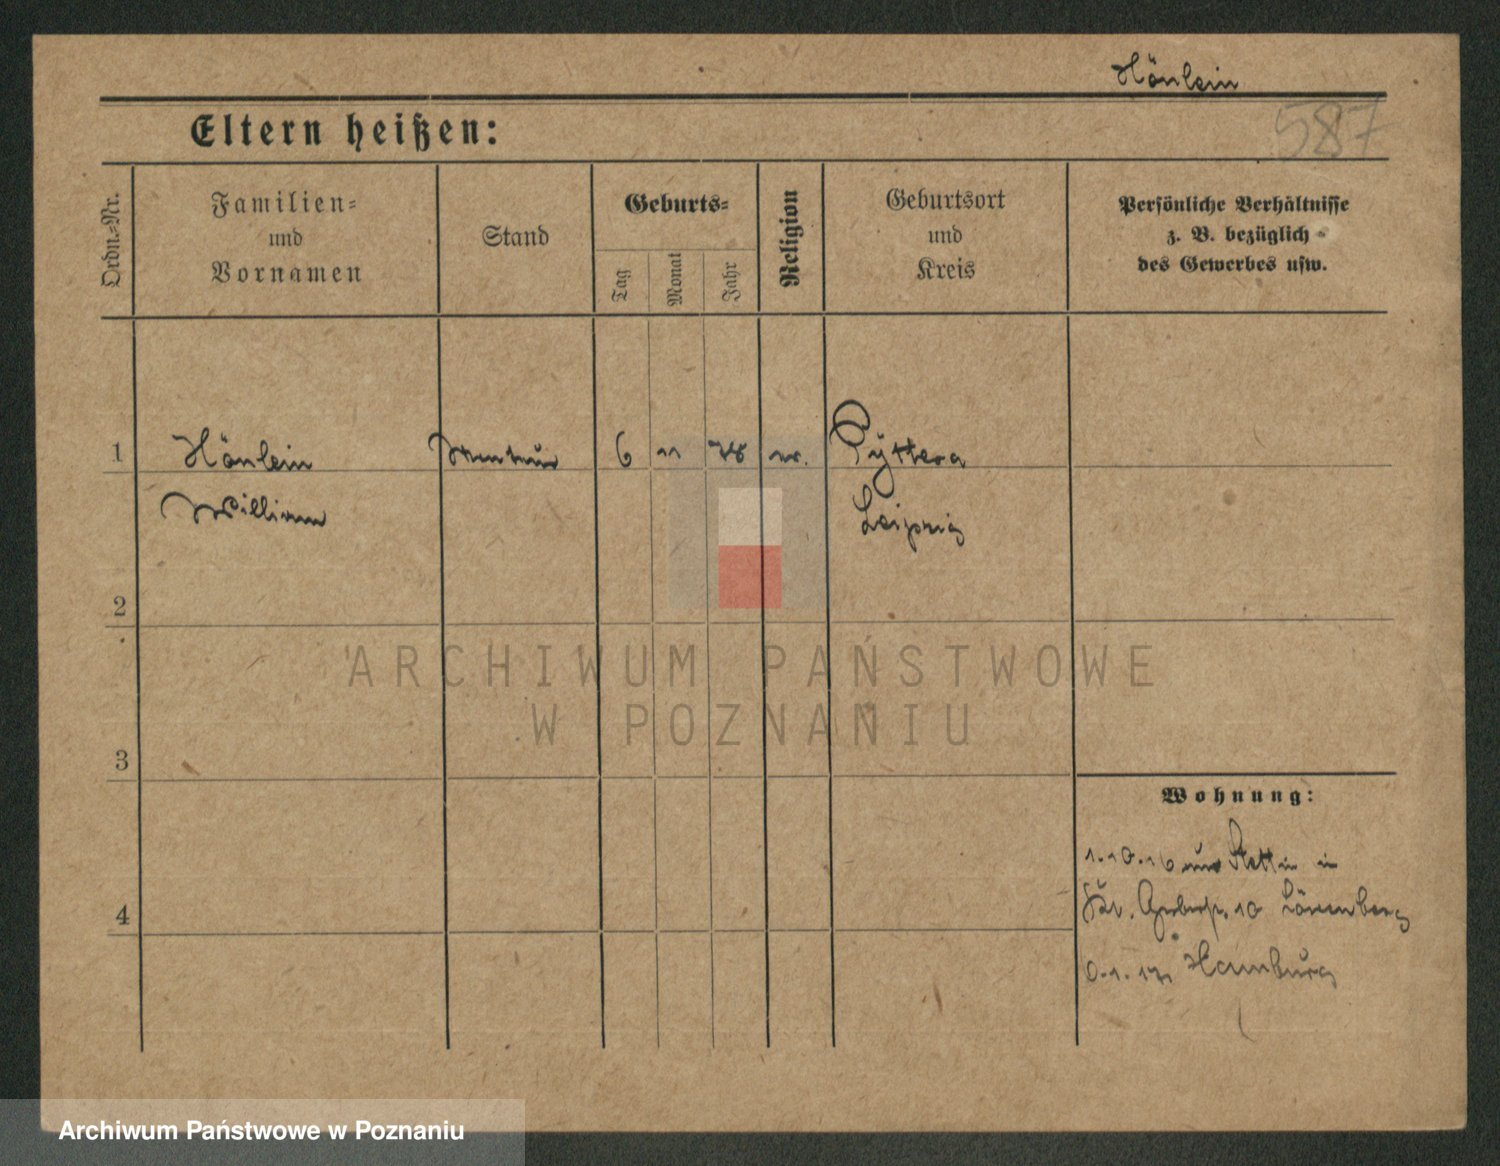 Hänlein
587
Eltern heißen:
Ordn.-Nr.
Familien-
und
Vornamen
Stand
Geburts-
Tag
Monat
Jahr
Religion
Geburtsort
und
Kreis
Persönliche Verhältnisse
z. B. bezüglich
des Gewerbes usw.
1
Hänlein
Monteur
6
11
78
ev.
William
Leipzig
2
ARCHIWUM PAŃSTWOWE
W POZNANIU
3
Wohnung:
1.10.16 Stettin
10
4
Hamburg
Archiwum Państwowe w Poznaniu